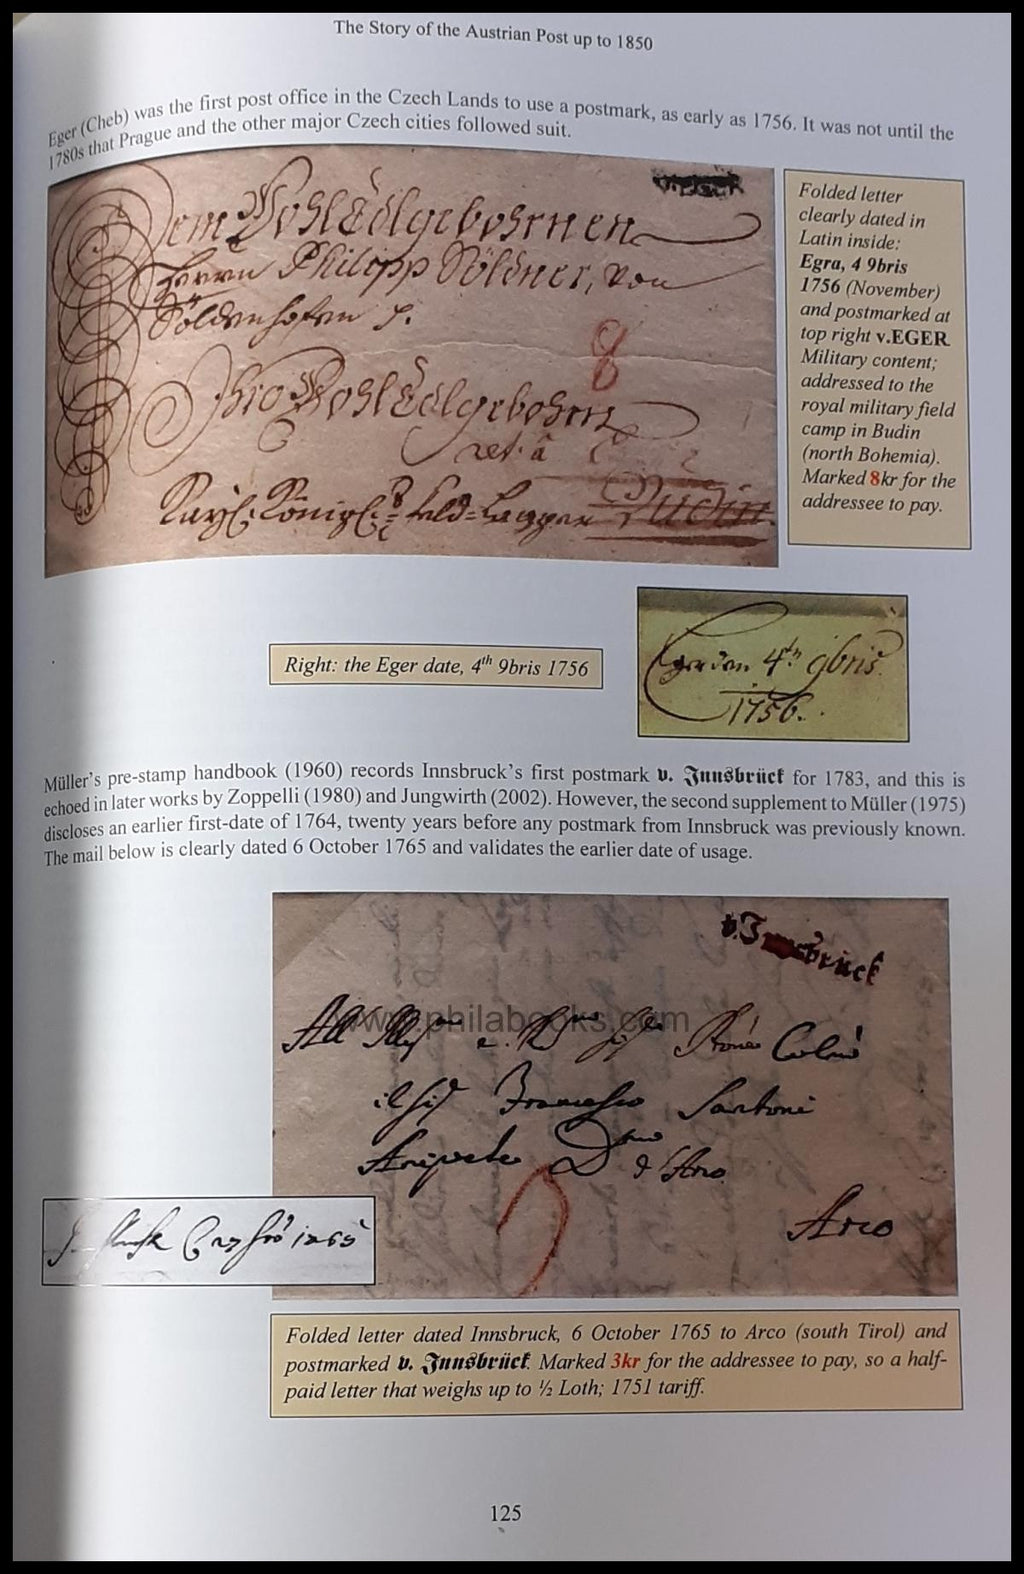 The Story of the Austrian Post up to 1850
Eger (Cheb) was the first post office in the Czech Lands to use a postmark, as early as 1756. It was not until the
1780s that Prague and the other major Czech cities followed suit.
Dem Wohl Edlgebohrnen
Herrn Philipp Söldner, von
Söldenhofen
8
Wohl Edlgebohrn
Königl: Feld=Lager Budin
Folded letter
clearly dated in
Latin inside:
Egra, 4 9bris
1756 (November)
and postmarked at
top right v.EGER.
Military content;
addressed to the
royal military field
camp in Budin
(north Bohemia).
Marked 8kr for the
addressee to pay.
Right: the Eger date, 4th 9bris 1756
Eger den 4th 9bris
1756.
Müller's pre-stamp handbook (1960) records Innsbruck's first postmark v. Innsbrück for 1783, and this is
echoed in later works by Zoppelli (1980) and Jungwirth (2002). However, the second supplement to Müller (1975)
discloses an earlier first-date of 1764, twenty years before any postmark from Innsbruck was previously known.
The mail below is clearly dated 6 October 1765 and validates the earlier date of usage.
v. Innsbrück
www.philabooks.com
Francesco Santoni
d'Arco
Arco
1765
Folded letter dated Innsbruck, 6 October 1765 to Arco (south Tirol) and
postmarked v. Innsbrück. Marked 3kr for the addressee to pay, so a half-
paid letter that weighs up to ½ Loth; 1751 tariff.
125